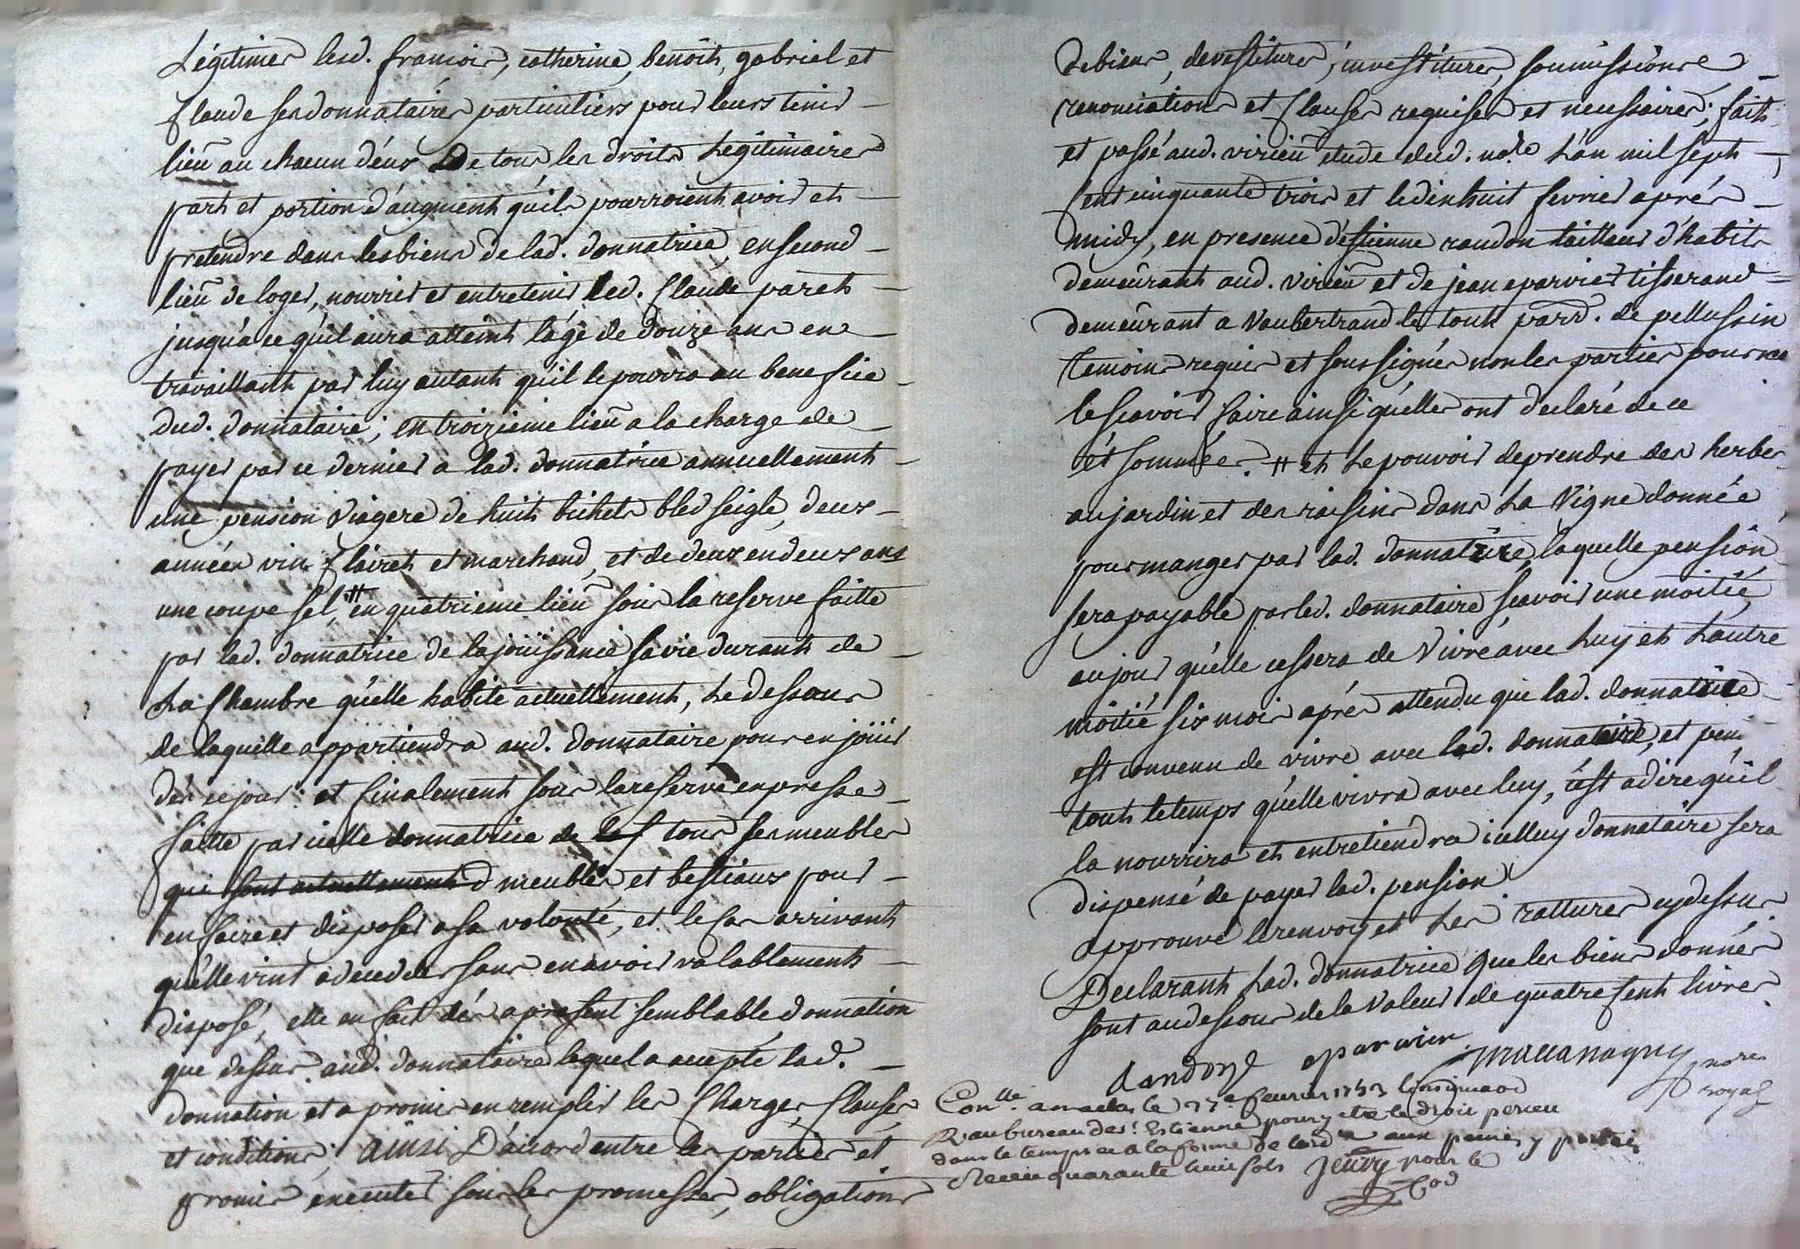 Légitimes lesd. francois, catherine, benoith, gabriel et
Claude ses donnataires particuliers pour leurs tenir
lieu au chacun d'éux De tous les droits Légitimaires
part et portion d'augment qu'ils pourroient avoir et
pretendre dans les biens de lad. donnatrice, en second
lieu de loger, nourrir et entretenir led. Claude pareth
jusqu'a ce qu'il aura atteint l'age de douze ans en
travaillant par luy autant qu'il le pourra au benefice
dud. donnataire; en troizieme lieu a la charge de
payer par ce dernier a lad. donnatrice annuellement
une pension viagere de huit bichets bled seigle, deux
années vin clairet et marchand, et de deux en deux ans
une coupe sel, # en quatrieme lieu sous la reserve faitte
par lad. donnatrice de la joüissance sa vie durant de
La Chambre qu'elle habite actuellement, Le dessous
de laquelle appartiendra aud. donnataire pour en joüir
dès ce jour: et finalement sous la reserve expresse
faitte par icelle donnatrice de tous ses meubles
qui sont actuellement d meubles et bestiaux pour
en faire et disposer a sa volonté, et le cas arrivant
qu'elle vint a deceder sans en avoir valablement
disposé, elle en fait dès a present semblable donnation
que dessus aud. donnataire lequel a accepté lad.
donnation et a promis en remplir les Charges, Clauses
et conditions; ainsi D'accord entre les parties et
promis executer sous les promesses, obligations
de biens, devestitures, investitures, soumissions
renonciations et Clauses requises et necessaires; fait
et passé aud. virieu etude dud. no.re L'an mil sept
Cent cinquante trois et le dixhuit fevrier aprés
midy, en presence d'éstienne randon tailleur d'habits
demeurant aud. virieu et de jean eparvier tisserand
demeurant a Vaubertrand le tout parr. de pellussin
temoins requis et soussignés non les parties pour ne
le scavoir faire ainsi qu'elles ont declaré de ce
ét sommée. # et Le pouvoir de prendre des herbes
au jardin et des raisins dans La Vigne donnée
pour manger par lad. donnatrice, laquelle pension
sera payable par led. donnataire scavoir une moitié
au jour qu'elle cessera de Vivre avec Luy et L'autre
moitié six mois aprés attendu que lad. donnatrice
est convenu de vivre avec led. donnataire, et pen
tout le temps qu'elle vivra avec luy, c'est a dire qu'il
la nourrira et entretiendra icelluy donnataire sera
dispensé de payer lad. pension
approuvé le renvoy et Les ratures cy dessus
Declarant Lad. donnatrice que les biens donnés
sont au dessous de la valeur de quatre Cent livres
Randon eparvier no.re
royal
Con.lle a fevrier 1753
R au bureau de S.t Estienne pour y etre le droit perceu
dans le temps et a la forme de aux peines y portées
Receu quarante huit sols pour le